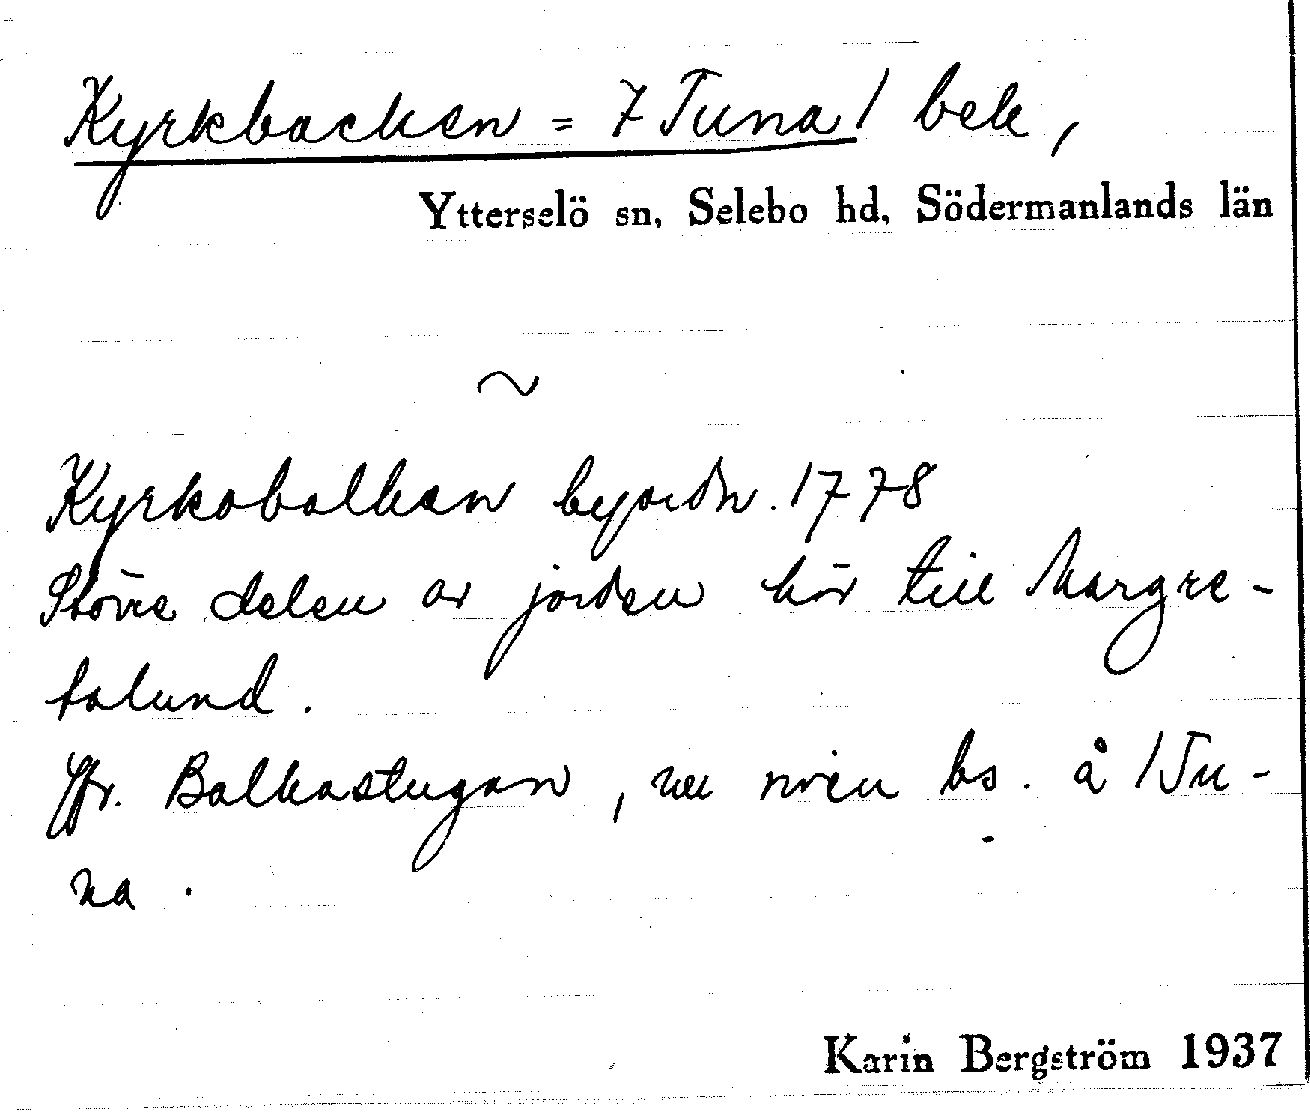 Kyrkbacken = 7 Tuna / bele,
Ytterselö sn, Selebo hd, Södermanlands län
~
Kyrkobalken byordn. 1778
Större delen av jorden hör till Margre-
talund.
Jfr. Balkastugan, bs. å 1 Tu-
na.
Karin Bergström 1937